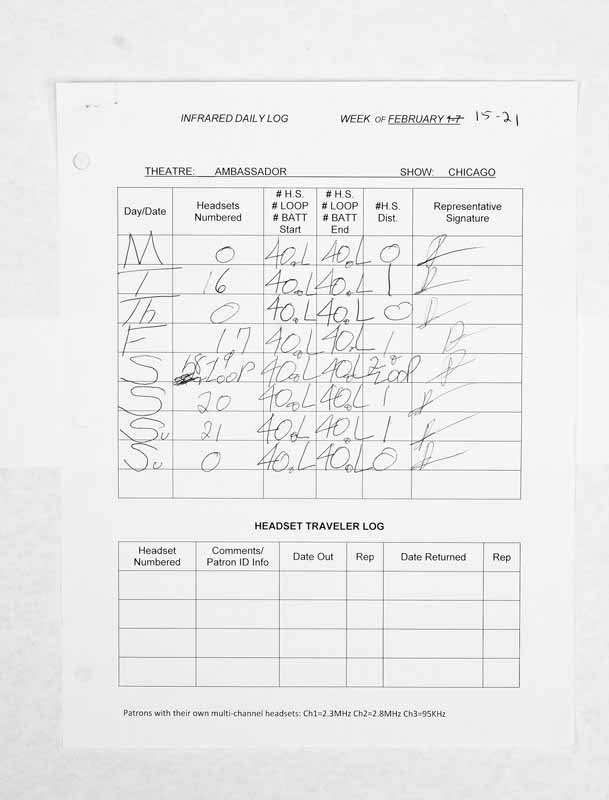 INFRARED DAILY LOG WEEK OF FEBRUARY 1-7 15-21
THEATRE: AMBASSADOR SHOW: CHICAGO
Day/Date Headsets Numbered # H.S. # LOOP # BATT Start # H.S. # LOOP # BATT End #H.S. Dist. Representative Signature
M 0 40.L 40.L 0
T 16 40.L 40.L 1
Th 0 40.L 40.L 0
F 17 40.L 40.L 1
S LOOP 40.L 40.L LOOP
S 20 40.L 40.L 1
Su 21 40.L 40.L 1
Su 0 40.L 40.L 0
HEADSET TRAVELER LOG
Headset Numbered Comments/ Patron ID Info Date Out Rep Date Returned Rep
Patrons with their own multi-channel headsets: Ch1=2.3MHz Ch2=2.8MHz Ch3=95KHz